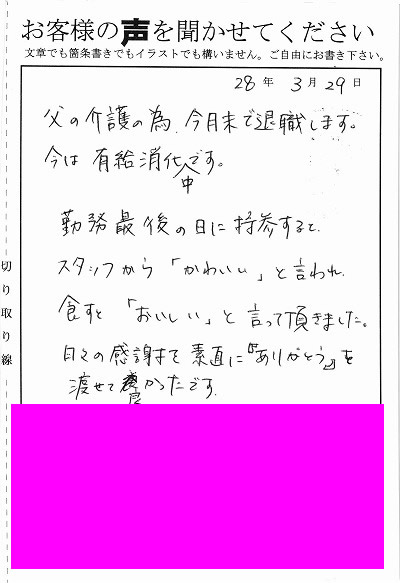 お客様の声を聞かせてください
文章でも箇条書きでもイラストでも構いません。ご自由にお書き下さい。
28年 3月29日
父の介護の為、今月末で退職します。
今は有給消化中です。
勤務最後の日に持参すると、
スタッフから「かわいい」と言われ、
食すと「おいしい」と言って頂きました。
日々の感謝まで素直に『ありがとう』を
渡せて良かったです。
切り取り線